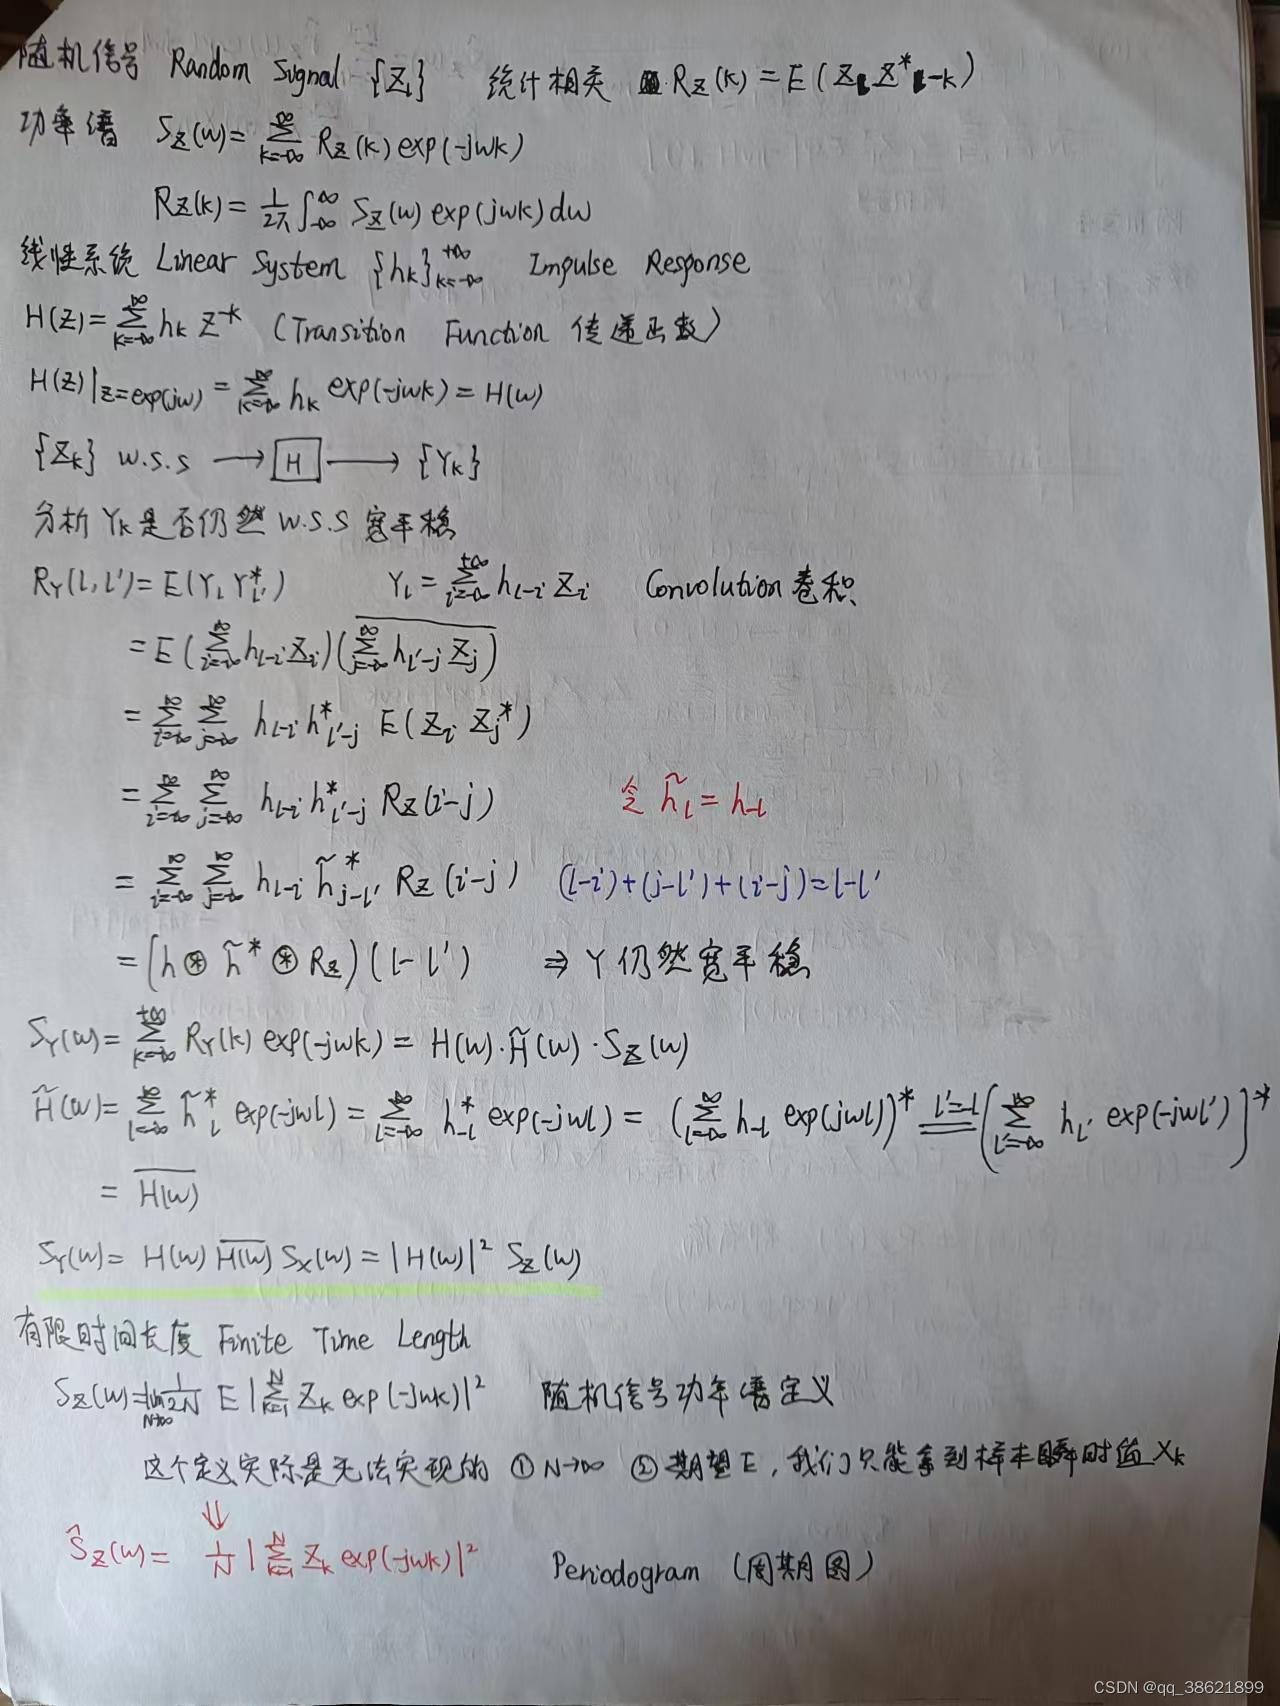 随机信号 Random Sugnal {Zₗ} 统计相关 R_Z(k) = E(Zₗ Z*ₗ₋ₖ)
功率谱 S_Z(w) = ∑_{k=-∞}^{∞} R_Z(k) exp(-jwk)
R_Z(k) = 1/2π ∫_{-∞}^{∞} S_Z(w) exp(jwk) dw
线性系统 Linear System {h_k}_{k=-∞}^{+∞} Impulse Response
H(Z) = ∑_{k=-∞}^{∞} h_k Z^{-k} (Transition Function 传递函数)
H(Z)|_{Z=exp(jw)} = ∑_{k=-∞}^{∞} h_k exp(-jwk) = H(w)
{Z_k} W.S.S → H → {Y_k}
分析 Y_k 是否仍然 W.S.S 宽平稳
R_Y(l, l') = E(Y_l Y*_{l'}) Y_l = ∑_{i=-∞}^{+∞} h_{l-i} Z_i Convolution 卷积
= E(∑_{i=-∞}^{∞} h_{l-i} Z_i) \overline{(∑_{j=-∞}^{∞} h_{l'-j} Z_j)}
= ∑_{i=-∞}^{∞} ∑_{j=-∞}^{∞} h_{l-i} h*_{l'-j} E(Z_i Z_j*)
= ∑_{i=-∞}^{∞} ∑_{j=-∞}^{∞} h_{l-i} h*_{l'-j} R_Z(i-j) 令 h̃_l = h_{-l}
= ∑_{i=-∞}^{∞} ∑_{j=-∞}^{∞} h_{l-i} h̃*_{j-l'} R_Z(i-j) (l-i)+(j-l')+(i-j)=l-l'
= (h ⊛ h̃* ⊛ R_Z)(l-l') ⇒ Y 仍然宽平稳
S_Y(w) = ∑_{k=-∞}^{+∞} R_Y(k) exp(-jwk) = H(w)·H̃(w)·S_Z(w)
H̃(w) = ∑_{l=-∞}^{∞} h̃*_l exp(-jwl) = ∑_{l=-∞}^{∞} h*_{-l} exp(-jwl) = (∑_{l=-∞}^{∞} h_{-l} exp(jwl))* \overset{l'=-l}{=} (∑_{l'=-∞}^{∞} h_{l'} exp(-jwl'))*
= \overline{H(w)}
S_Y(w) = H(w) \overline{H(w)} S_X(w) = |H(w)|² S_Z(w)
有限时间长度 Finite Time Length
S_Z(w) = lim_{N→∞} 1/2N E|∑_{k=1}^{N} Z_k exp(-jwk)|² 随机信号功率谱定义
这个定义实际是无法实现的 ① N→∞ ② 期望E,我们只能拿到样本瞬时值 X_k
⇓
Ŝ_Z(w) = 1/N |∑_{k=1}^{N} Z_k exp(-jwk)|² Periodogram (周期图)
CSDN @qq_38621899